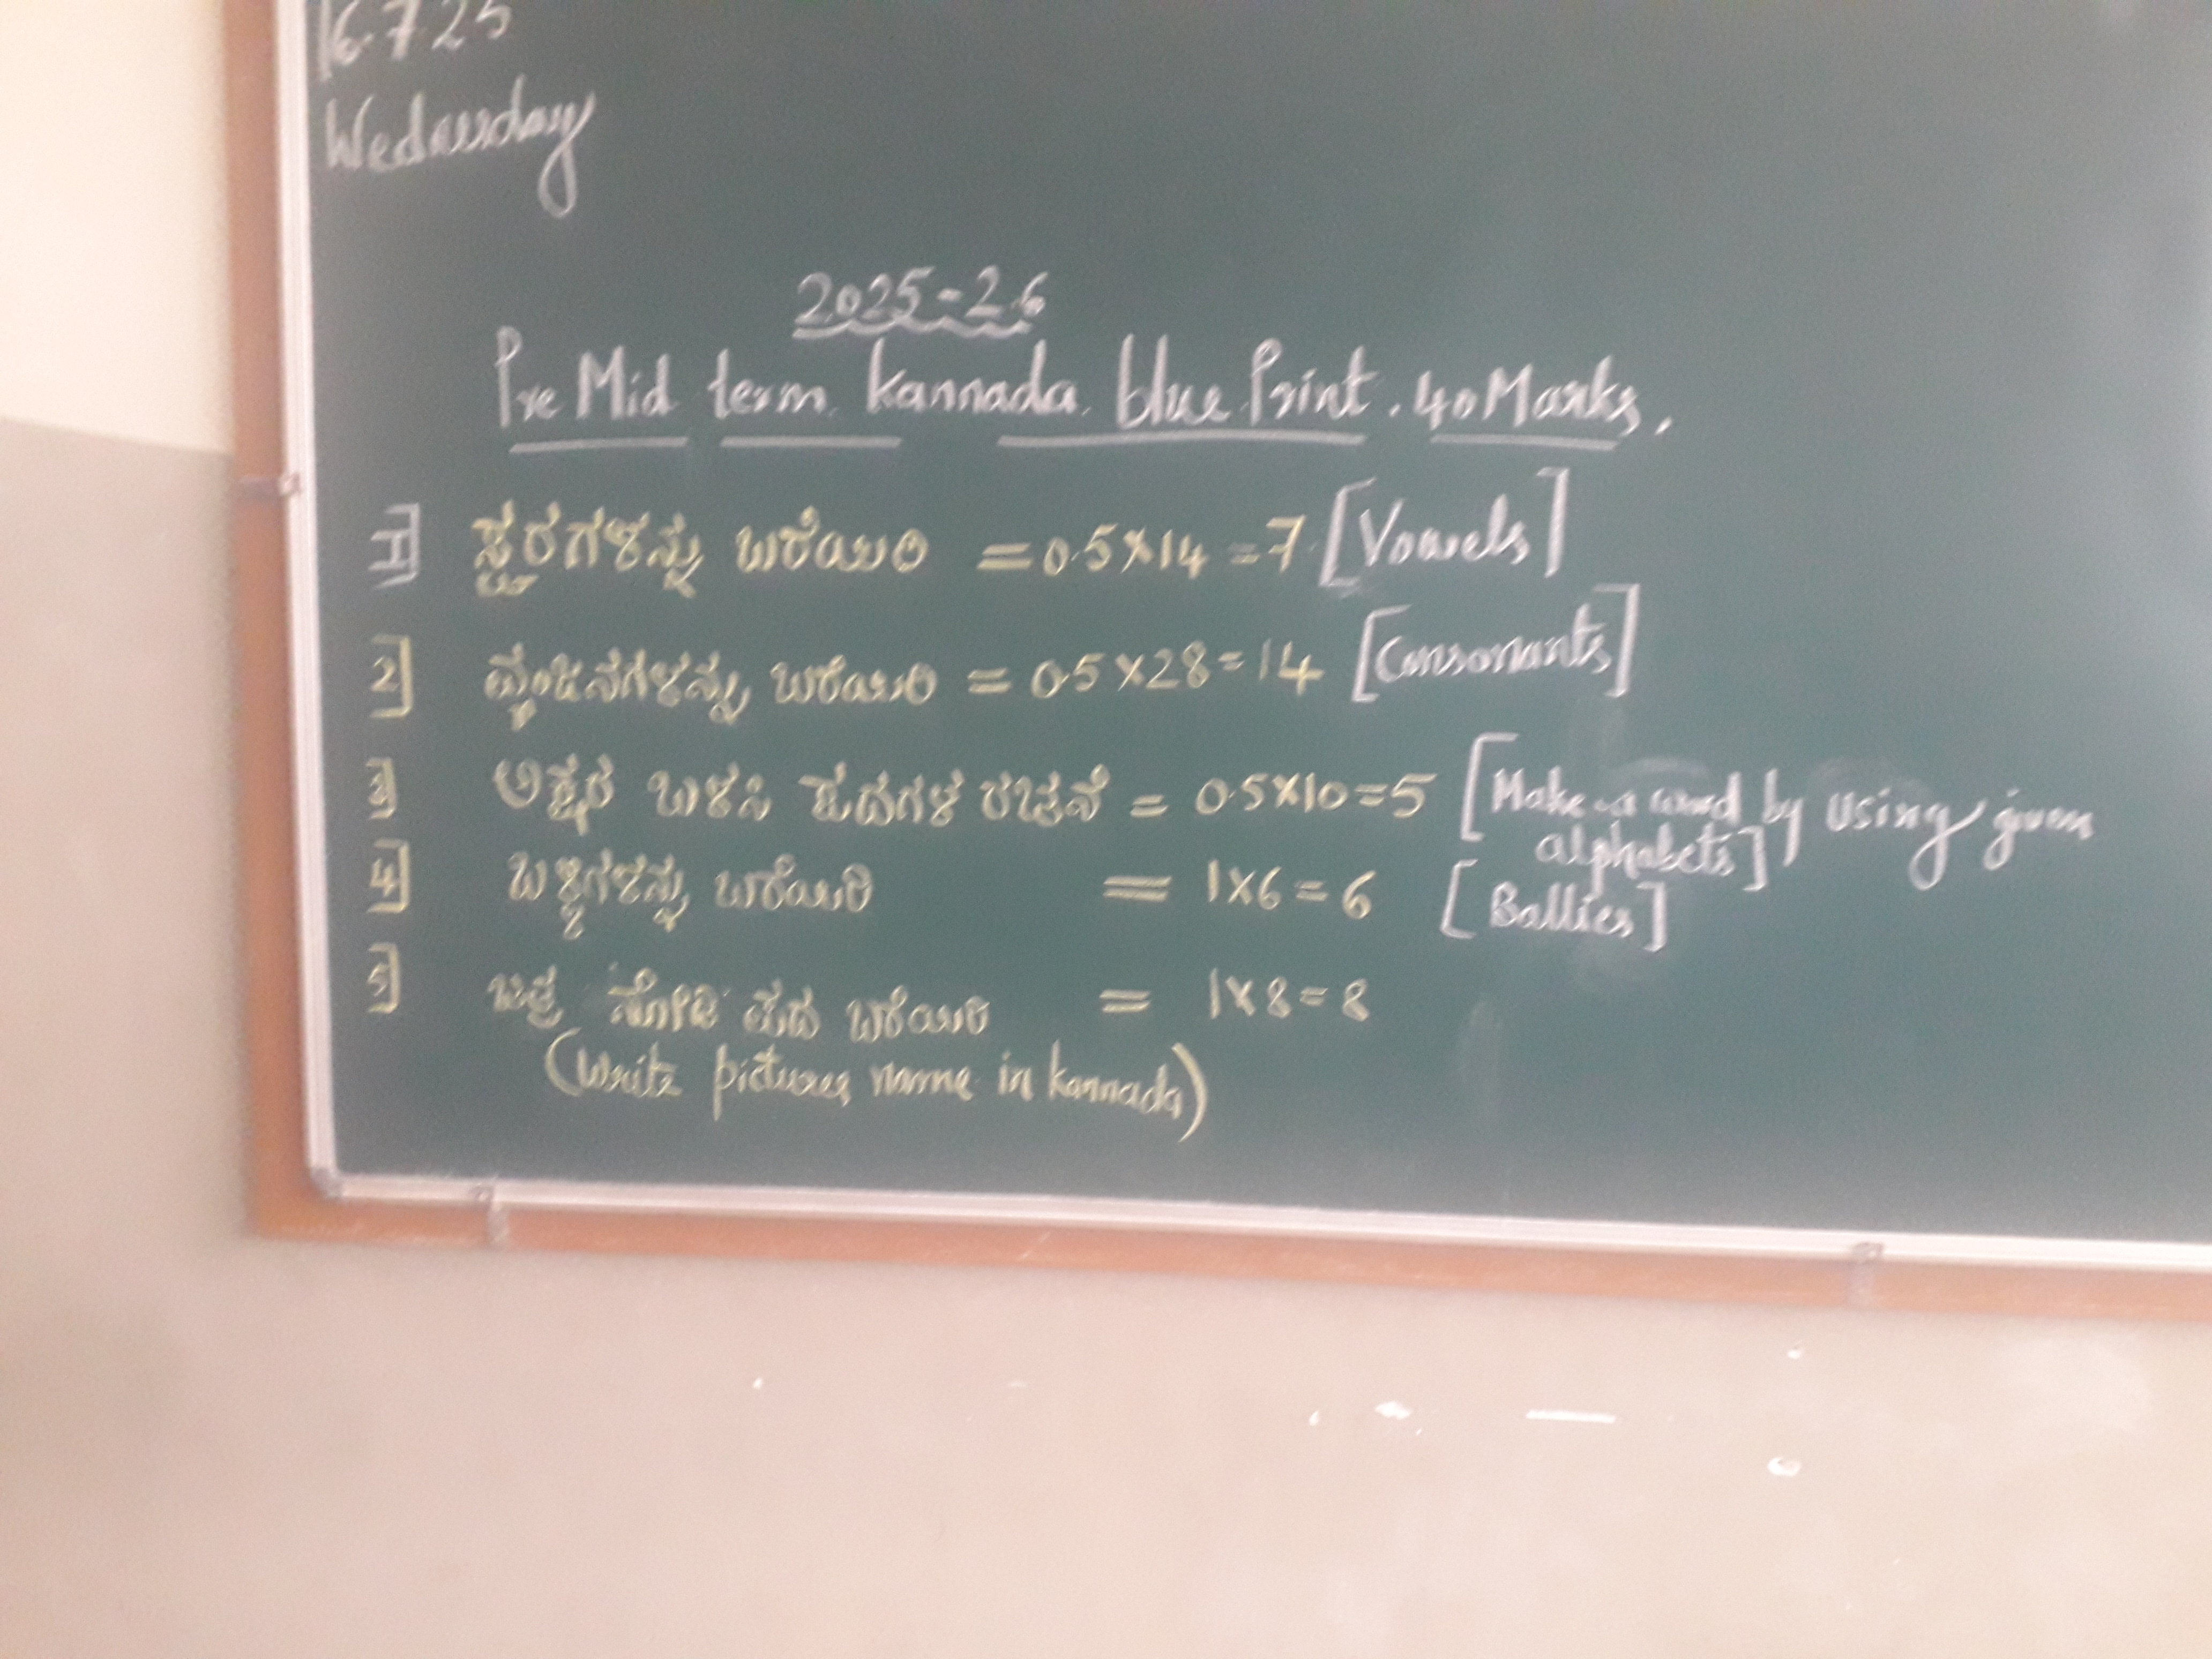 16.7.25
Wednesday
2025-26
Pre Mid term kannada blue Print. 40 Marks.
1] ಸ್ವರಗಳನ್ನು ಬರೆಯಿರಿ = 0.5×14 =7 [Vowels]
2] ವ್ಯಂಜನಗಳನ್ನು ಬರೆಯಿರಿ = 0.5×28=14 [Consonants]
3] ಅಕ್ಷರ ಬಳಸಿ ಪದಗಳ ರಚನೆ = 0.5×10=5 [Make a word by using given
alphabets]
4] ಬಳ್ಳಿಗಳನ್ನು ಬರೆಯಿರಿ = 1×6=6 [Ballies]
5] ಚಿತ್ರ ನೋಡಿ ಪದ ಬರೆಯಿರಿ = 1×8=8
(Write pictures name in kannada)